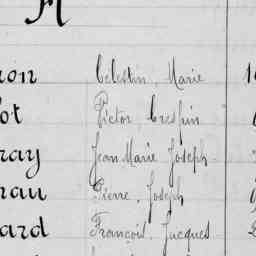 A
non Célestin, Marie 1
ot Victor, Crespin
ray Jean Marie Joseph
rau Pierre, Joseph
ard François, Jacques